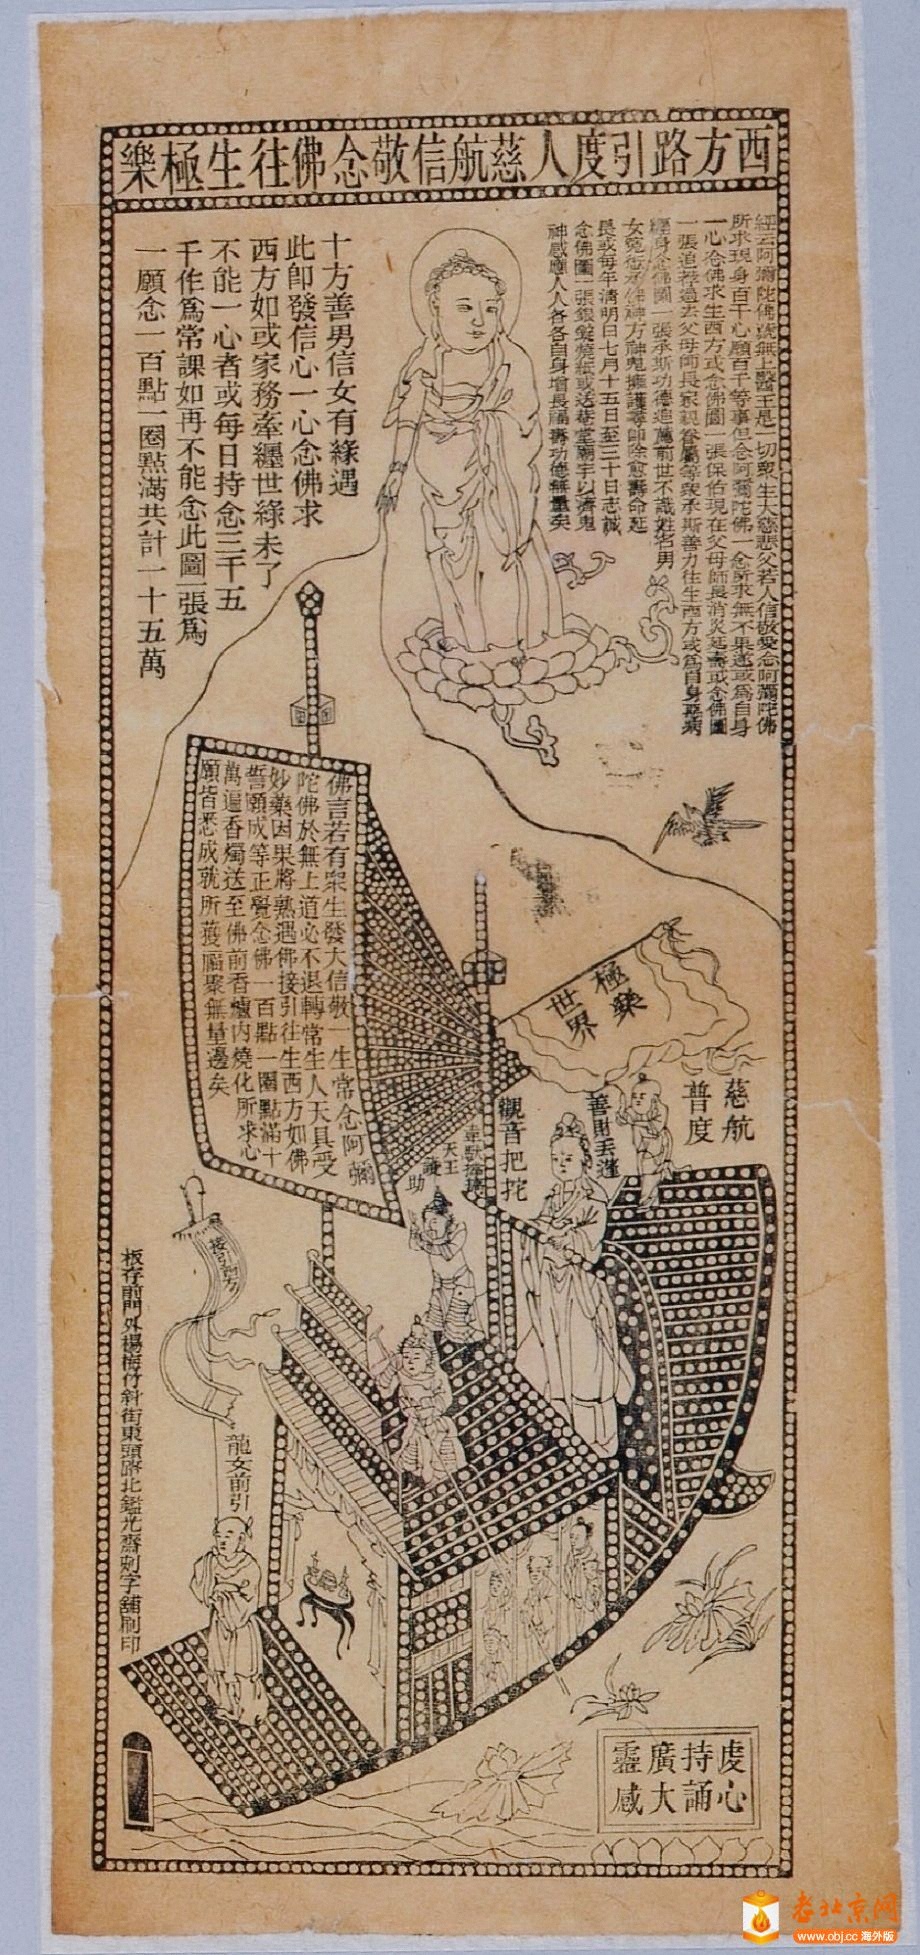 西方路引度人慈航信敬念佛往生極樂
經云阿彌陀佛號無上醫王是一切衆生大慈悲父若人信敬愛念阿彌陀佛
所求現身百千心願百千等事但念阿彌陀佛一念所求無不果遂或爲自身
一心念佛求生西方或念佛圖一張保佑現在父母師長消災延壽或念佛圖
一張追荐過去父母師長家親眷屬等衆承斯善力往生西方或爲自身惡病
纏身念佛圖一張承斯功德追薦前世不識姓名男
女冤衆承佛神力神鬼擁護尋卽除愈壽命延
長或每年淸明日七月十五日至三十日志誠
念佛圖一張銀錠燒紙或送菴堂廟宇以濟鬼
神感應人人各各自身增長福壽功德無量矣
十方善男信女有緣遇
此卽發信心一心念佛求
西方如或家務牽纏世緣未了
不能一心者或每日持念三千五
千作爲常課如再不能念此圖一張爲
一願念一百點一圈點滿共計一十五萬
佛言若有衆生發大信敬一生常念阿彌
陀佛於無上道必不退轉常生人天具受
妙藥因果將熟遇佛接引往生西方如佛
誓願成等正覺念佛一百點一圈點滿十
萬遍香燭送至佛前香爐內燒化所求心
願皆悉成就所獲福聚無量邊矣
極樂
世界
慈航
普度
善財
觀音把柁
天王
護助
接引西方
龍女前引
板存前門外楊梅竹斜街東頭路北鑑光齋刻字舖刷印
虔心
持誦
廣大
靈感
老北京网
www.obj.cc 海外版